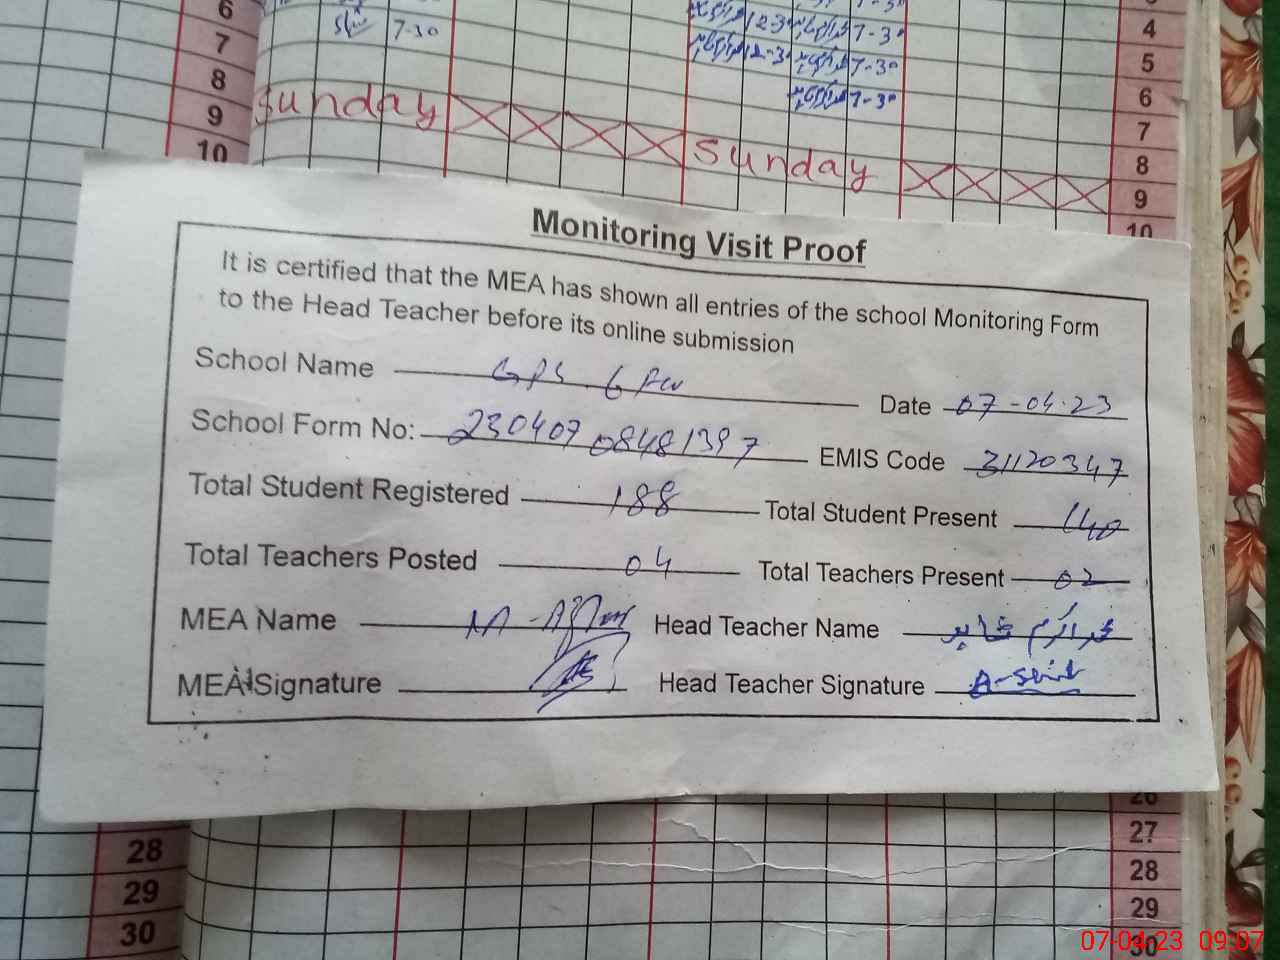 6
7
8
9
10
7-30
12-3
7-30
12-30
7-30
7-30
4
5
6
7
8
9
10
Sunday
Sunday
Monitoring Visit Proof
It is certified that the MEA has shown all entries of the school Monitoring Form
to the Head Teacher before its online submission
School Name GPS
Date 07-04-23
School Form No: 230407 08481397
EMIS Code 31120347
Total Student Registered 188
Total Student Present 140
Total Teachers Posted 04
Total Teachers Present 02
MEA Name
Head Teacher Name
MEA Signature
Head Teacher Signature
26
27
28
29
30
28
29
30
07-04-23 09:07